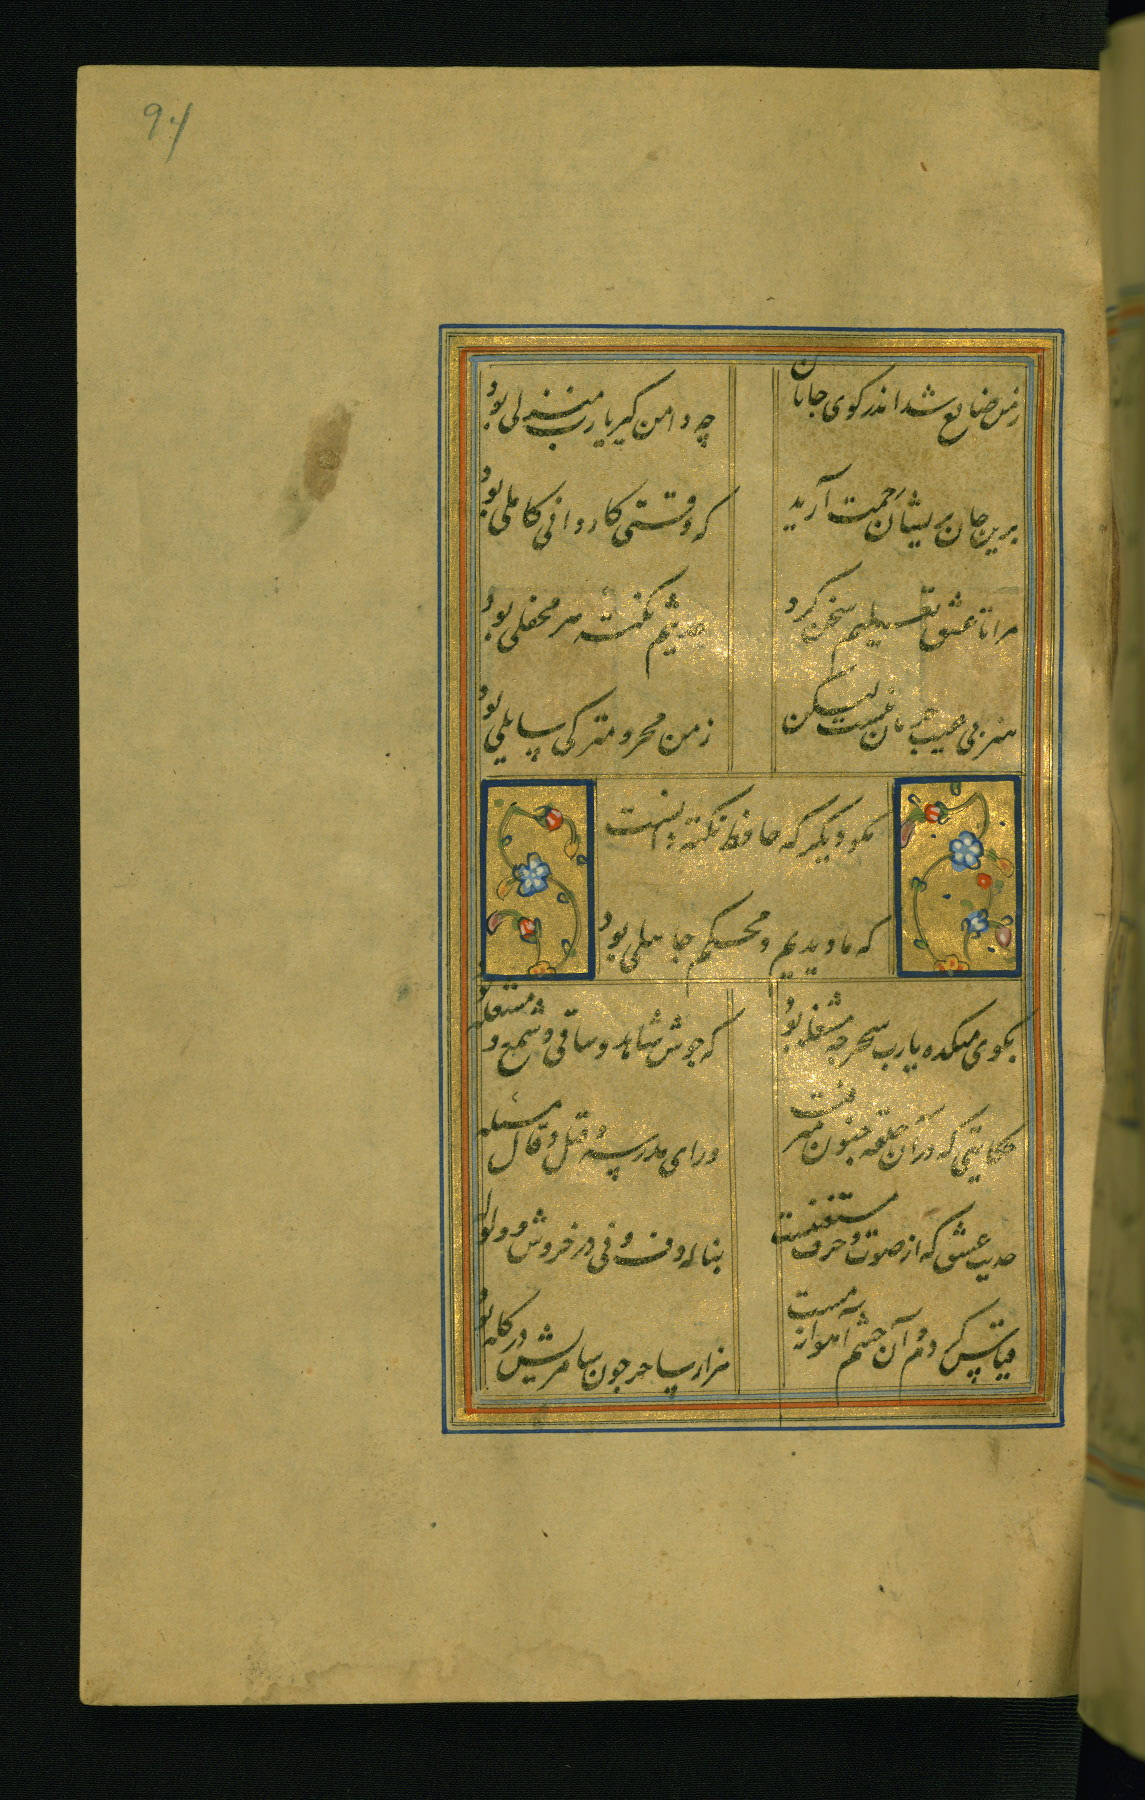 94
ز من ضایع شد اندر کوی جانان
چه دامن گیر یا رب منزلی بود
برین جان پریشان رحمت آرید
که وقتی کاردانی کاملی بود
مرا تا عشق تعلیم سخن کرد
حدیثم نکتهٔ هر محفلی بود
هنر بی عیب حرمان نیست لیکن
ز من محروم‌تر کی سایلی بود
مکو دیگر که حافظ نکته دانست
که ما دیدیم و محکم جاهلی بود
بکوی میکده یا رب سحر چه مشغله بود
که جوش شاهد و ساقی و شمع و مشعله بود
حکایتی که در آن حلقه جنون میرفت
ورای مدرسه و قیل و قال مسئله
حدیث عشق که از صوت و حرف مستغنیست
بناله دف و نی در خروش و ولوله
قیاس کردم و آن چشم آهوانه مست
هزار ساحر چون سامریش در گله بود